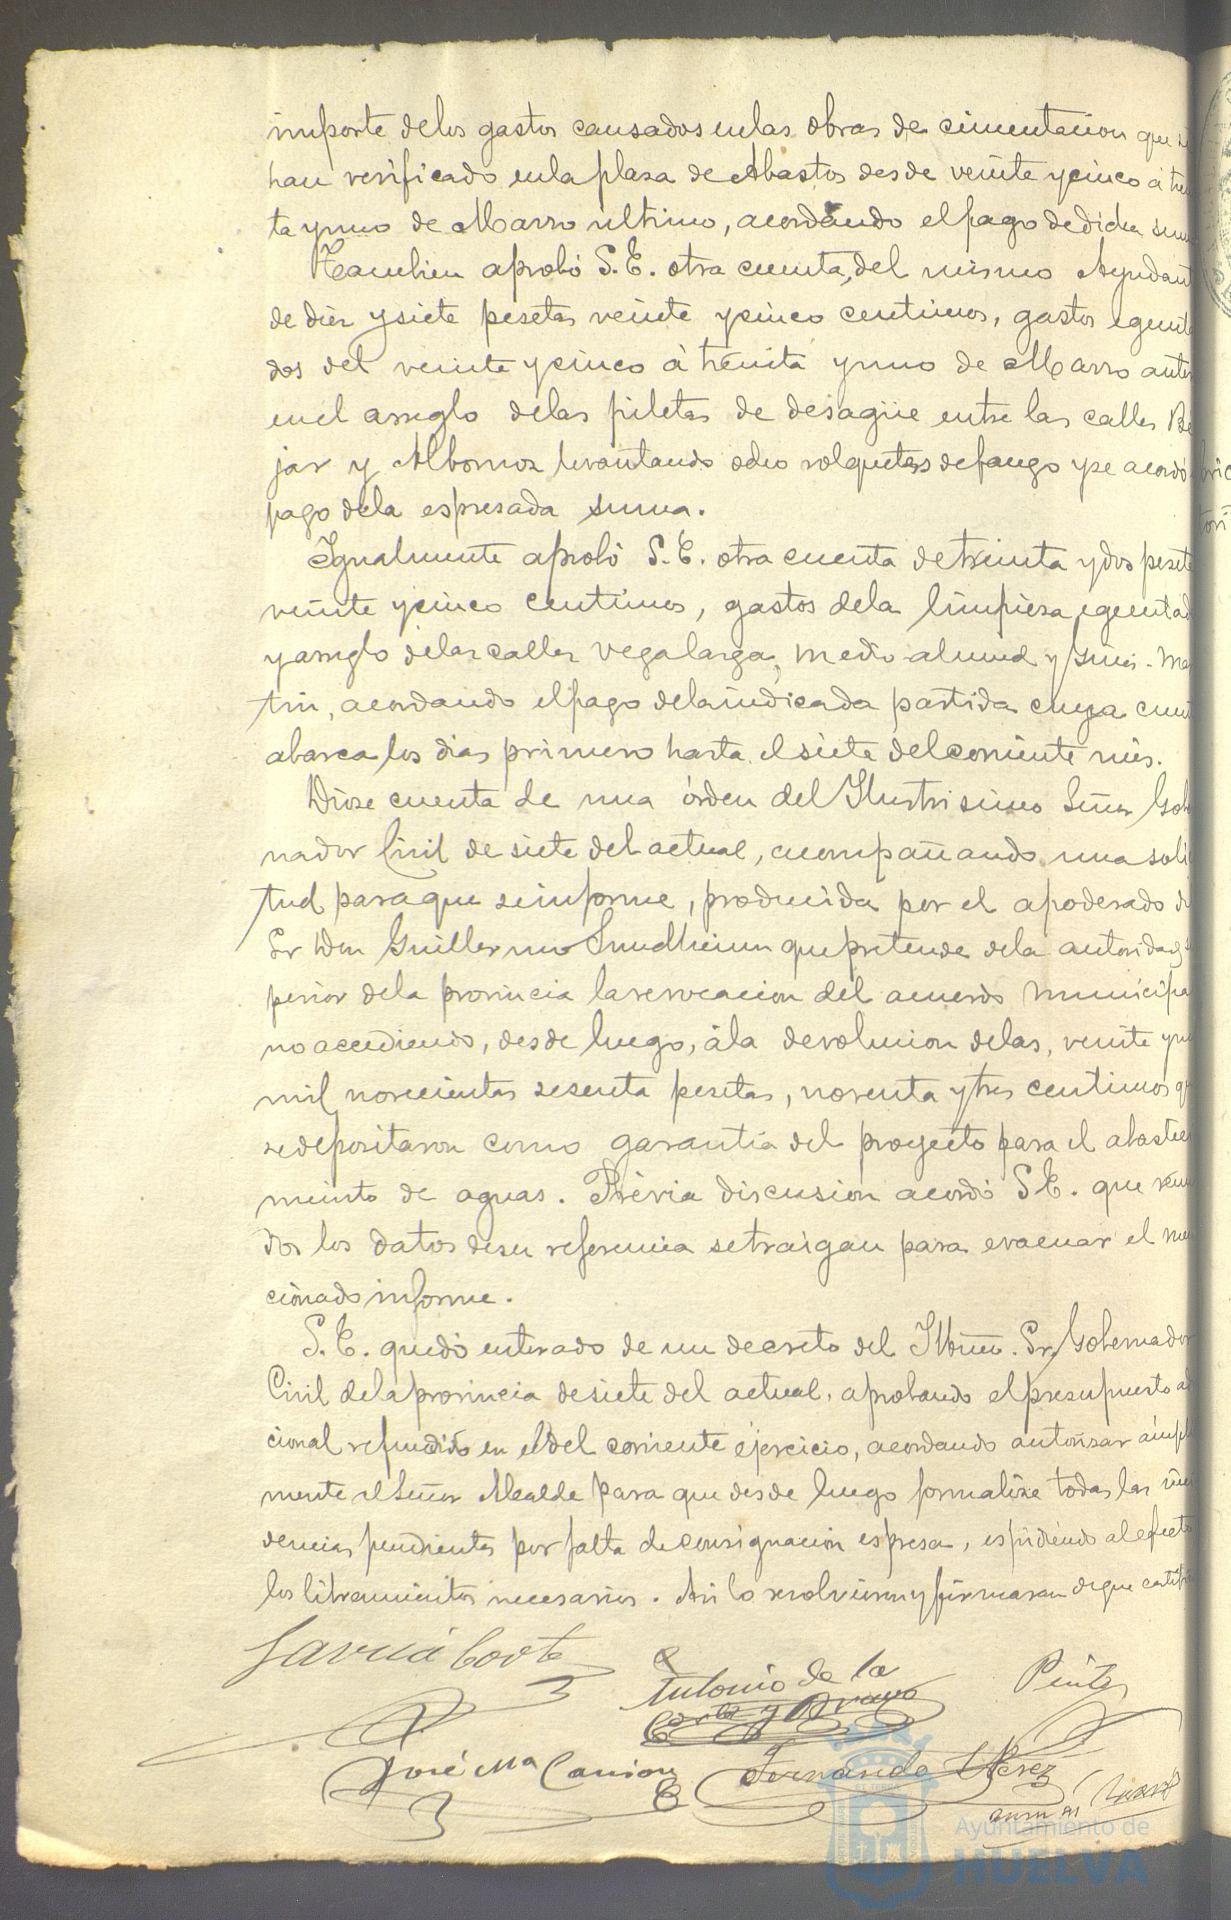 importe delos gastos causados enlas obras de cimentacion que se
han verificado enla plasa de Abastos desde veinte ycinco á trein
ta yuno de Marzo ultimo, acordando el pago dedicha suma
Tambien aprobó S.E. otra cuenta, del mismo Ayudant
de diez ysiete pesetas veinte ycinco centimos, gastos egecuta
dos del veinte ycinco á treinta yuno de Marzo anter
enel arreglo delas piletas de desagüe entre las calles Be
jar y Albornoz levantando ocho volquetes defango yse acordó
pago dela espresada suma.
Igualmente aprobó S.E. otra cuenta de treinta ydos peseta
veinte ycinco centimos, gastos dela limpieza egecutad
yarreglo delas calles vegalarga, medio almud y Gines-Mar
tin, acordando elpago delaindicada partida cuya cuent
abarca los dias primero hasta el siete delcorriente mes.
Dióse cuenta de una órden del Ilustrisimo Señor Gober
nador Civil de siete del actual, acompañando una soli
tud paraque seinforme, producida por el apoderado d
Sr Don Guillermo Sundheim quepretende dela autoridad
perior dela provincia larevocacion del acuerdo municipa
no accediendo, desde luego, ála devolucion delas, veinte yun
mil novecientas sesenta pesetas, noventa ytres centimos q
sedepositaron como garantia del proyecto para el abasteci
miento de aguas. Prévia discusion acordó S.E. que reuni
dos los datos desu referencia setraigan para evacuar el men
cionado informe.
S.E. quedó enterado de un decreto del Iltmo. Sr Gobernador
Civil delaprovincia desiete del actual, aprobando elpresupuesto adi
cional refundido en el del corriente éjercicio, acordando autorizar ámpli
mente alSeñor Alcalde para que desde luego formalize todas las inci
dencias pendientes por falta deconsignacion espresa, espidiendo alefecto
los libramientos necesarios. Asi lo resolvieron y firmaron deque certifi
Garcia Corte
Antonio de la
Pinto
José Mª Carrion
Fernando Perez
Ayuntamiento de
HUELVA